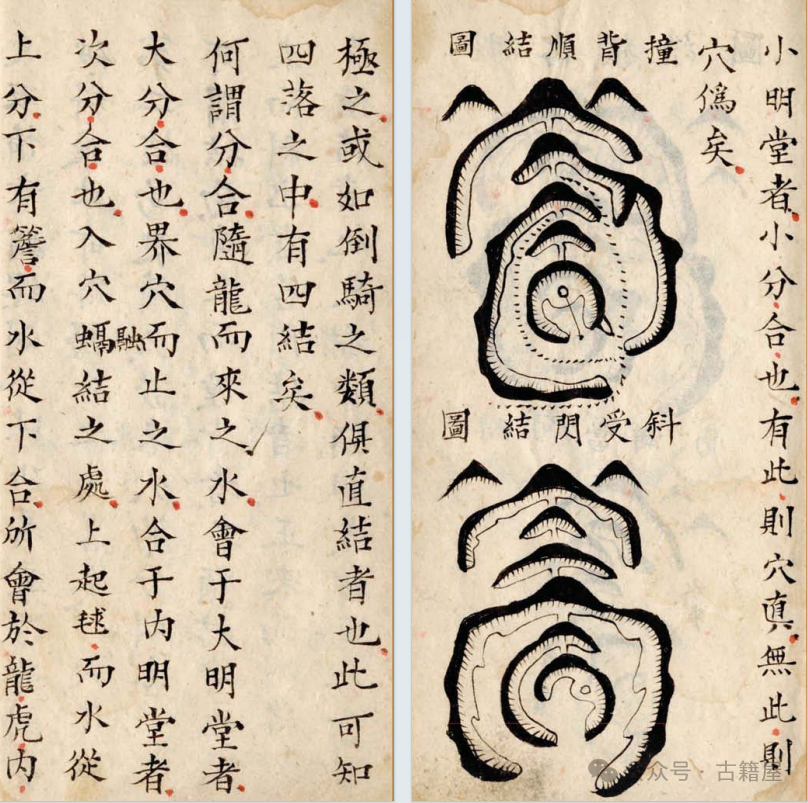 極之或如倒騎之類俱直結者也此可知
四落之中有四結矣
何謂分合隨龍而來之水會于大明堂者
大分合也界穴而止之水合于內明堂者
次分合也入穴螎結之處上起毬而水從
融
上分下有簷而水從下合所會於龍虎內
小明堂者小分合也有此則穴眞無此則
穴僞矣
撞背順結圖
斜受閃結圖
公众号 · 古籍屋